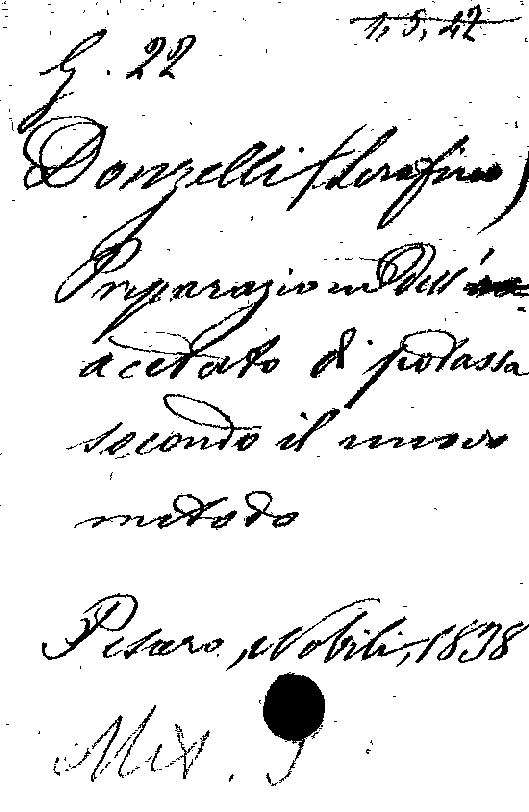 1, 5, 42
G. 22
Donzelli (Serafino)
Preparazione dell'
acetato di potassa
secondo il nuovo
metodo
Pesaro, Nobili, 1838